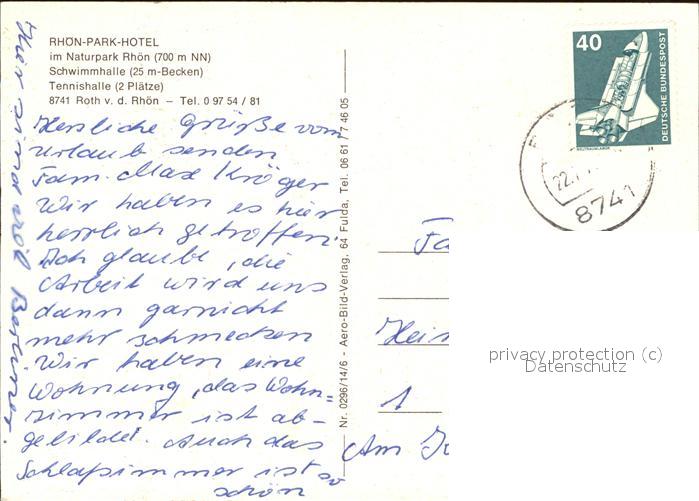 RHÖN-PARK-HOTEL
im Naturpark Rhön (700 m NN)
Schwimmhalle (25 m-Becken)
Tennishalle (2 Plätze)
8741 Roth v. d. Rhön – Tel. 0 97 54 / 81
Herzliche Grüße vom
Urlaub senden
Fam. Max Kröger
Wir haben es hier
herrlich getroffen.
Ich glaube, die
Arbeit wird uns
dann garnicht
mehr schmecken
Wir haben eine
Wohnung, das Wohn=
zimmer ist ab-
gebildet. Auch das
Schlafzimmer ist so
schön
Hier sind viel Berliner.
Nr. 0296/14/6 - Aero-Bild-Verlag, 64 Fulda, Tel. 06 61 / 7 46 05
40
DEUTSCHE BUNDESPOST
WELTRAUMLABOR
22.
8741
Fa
Hein
1
Am
privacy protection (c)
Datenschutz